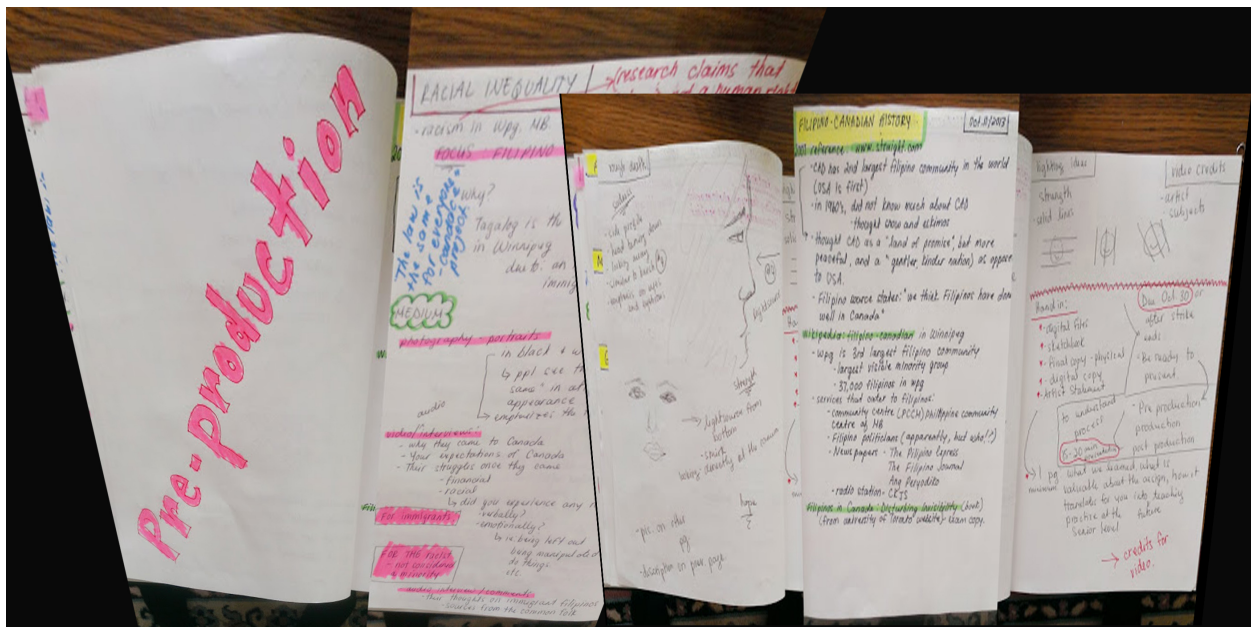 Pre-production
RACIAL INEQUALITY
research claims that
a human right
- racism in Wpg, MB.
FOCUS FILIPINO
The law is
the same
for everyone
- candace's
project
Why?
Tagalog is th
in Winnipeg
due: an
immig
MEDIUM
photography portraits
in black + w
↳ ppl see th
same" in al
appearance
→ emphasizes the
audio
video/"interviews"
- why they came to Canada
- Your expectations of Canada
- Their struggles once they came
- financial
- racial
↳ did you experience any
- verbally?
- emotionally?
↳ is being left out
being manipulated
do things.
etc.
For immigrants
FOR THE racist
- not considered
a minority
audio interview/comments
- Their thoughts on immigrant filipinos
- sources from the common folk
- side profile
- head turning down
- looking away
- emphasis on eyes
lightsource
strength
→ lightsource from
bottom
looking directly at the camera
hope
- pic. on other
pg.
- description on prev. page.
FILIPINO-CANADIAN HISTORY
Oct.11/2013
reference: www.straight.com
- CAD has 2nd largest filipino community in the world
(USA is first)
- in 1960's, did not know much about CAD
- thought snow and eskimos
- thought CAD as a "land of promise", but more
peaceful, and a "gentler, kinder nation) as oppose
to USA.
- Filipino source states: "we think Filipinos have done
well in Canada"
wikipedia: filipino-canadian in Winnipeg
- wpg is 3rd largest filipino community
- largest visible minority group
- 37,000 filipinos in wpg
- services that cater to filipinos:
- community centre (PCCM) philippine community
centre of MB
- Filipino politicians (apparently, but who!?)
- News papers - The Pilipino Express
The Filipino Journal
Ang Peryodiko
- radio station - CKJS
Filipinos in Canada: Disturbing Invisibility (book)
(from university of Toronto website) exam copy.
lighting ideas
strength
- solid lines
video credits
- artist
- subjects
Hand in:
• digital files
• sketchbook
• Final copy - physical
• digital copy
• Artist statement
Due Oct. 30 or
after strike
ends.
- Be ready to
present.
to understand
process
15-20 min
- Pre production
production
post production
1 pg
minimum
what we learned, what is
valuable about the assign, how it
translate for you into teaching
practice at the future
senior level
→ credits for
video.